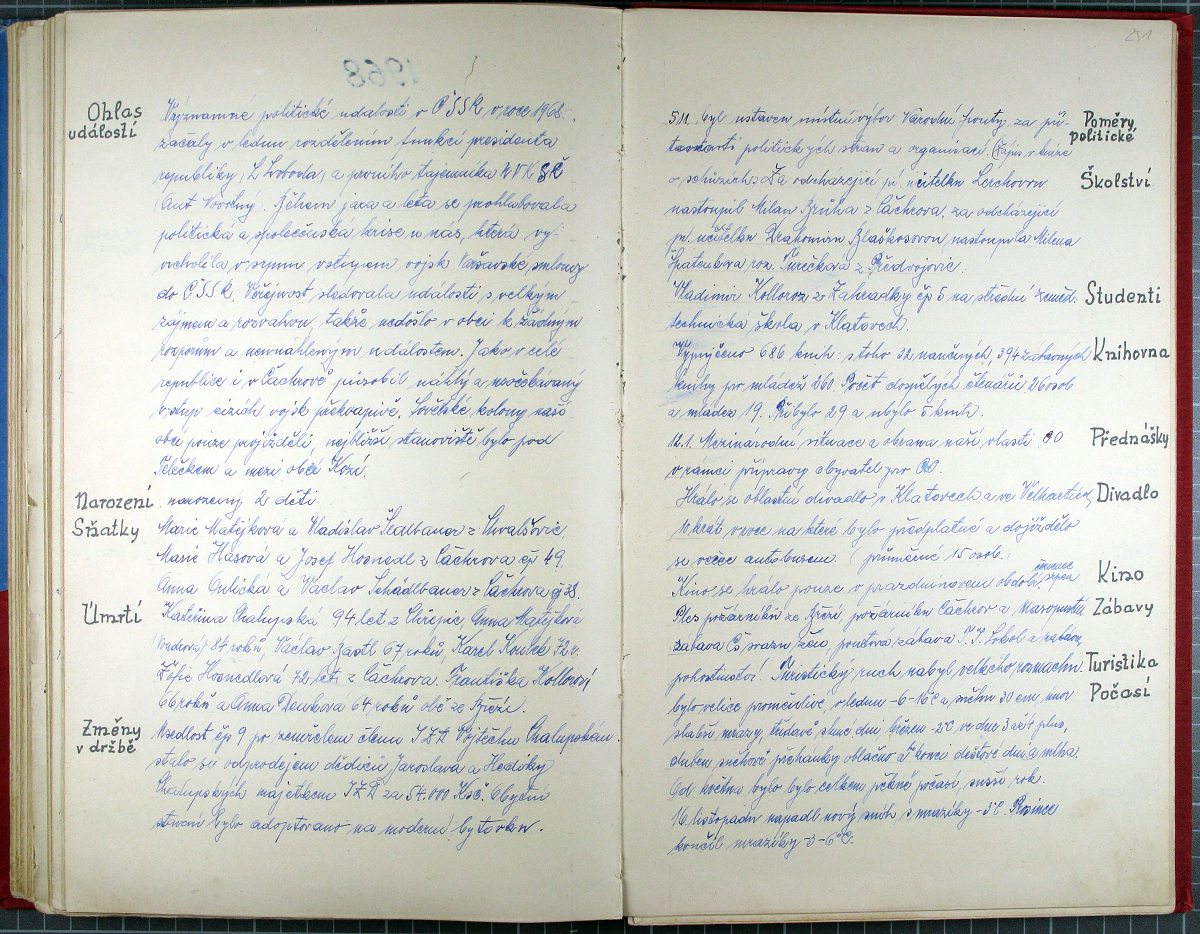 1968
Ohlas událostí
Významné politické události v ČSSR v roce 1968.
začaly v lednu rozdělením funkcí presidenta
republiky, L Svoboda, a prvního tajemníka ÚV KSČ
Ant Novotný. Během jara a léta se prohlubovala
politická a společenská krise u nás, která vy-
vrcholila v srpnu vstupem vojsk Varšavské smlouvy
do ČSSR. Veřejnost sledovala události s velkým
zájmem a rozvahou, takže nedošlo v obci k žádným
rozporům a neunáhleným událostem. Jako v celé
republice i v Čáchrově působil náhlý a neočekávaný
vstup cizích vojsk překvapivě. Sovětské kolony naší
obcí pouze projížděli, nejbližší stanoviště bylo pod
Želeckem a mezi obcí Kozí.
Narození
narozeny 2 děti
Sňatky
Marie Matějková a Vladislav Šlalbauer z Chvalšovic,
Marie Hasová a Josef Hosnedl z Čáchrova čp 49.
Anna Aulická a Václav Schådlbauer z Čáchrova čp 38.
Úmrtí
Kateřina Chalupská 94 let z Chřepic, Anna Matějková
84 roků, Václav Bástl 67 roků, Karel Koutek 72 r.
Žofie Hosnedlová 72 let z Čáchrova. Františka Kollrosová
66 roků a Anna Denková 64 roků obě ze Březí.
Změny v držbě
Usedlost čp 9 po zemřelém členu JZD Vojtěchu Chalupském.
stalo se odprodejem dědiců Jaroslava a Hedviky
Chalupských majetkem JZD za 54.000 Kčs. Obytné
stavení bylo adoptováno na moderní bytovku.
251
5.11. byl ustaven místní výbor Národní fronty za pří-
tomnosti politických stran a organisací. (Zápis v knize
o schůzích.)
Poměry politické
Za odcházející pí učitelku Lerchovou
Školství
nastoupil Milan Brůha z Čáchrova, za odcházející
pí. učitelku Drahomíru Blaškosovou nastoupila Milena
Špatenková roz. Turečková z Předvojovic.
Vladimír Kolloroz z Zahrádky čp 5 na střední zeměd.
Studenti
technická škola v Klatovech.
Vypůjčeno 686 knih, z toho 32 naučných, 394 zábavných
Knihovna
knihy pro mládež 260 Počet dospělých čtenářů 26 osob
a mládež 19. Přibylo 29 a ubylo 5 knih.
12.1. Mezinárodní situace a obrana naší vlasti CO
Přednášky
v rámci přípravy obyvatel pro CO.
Hrálo se oblastní divadlo v Klatovech a ve Velharticích
Divadlo
10 krát v roce na které bylo předplatné a dojíždělo
se večer autobusem (průměrně 15 osob.)
Kino se hrálo pouze v prázdninovém období, červenec srpen
Kino
Ples požárníků ze Březí, požárníku Čáchrov a Masopustní
Zábavy
zábava Čs svazu žen, pouťová zábava T.J. Sokol a zábava
pohostinství. Turistický ruch nabyl velkého rozmachu.
Turistika
bylo velice proměnlivé, v lednu -6 -16°C a sněhu 30 cm, únor
Počasí
slabší mrazy, střídavě slunc dní, březen -2°C ve dne 3 až 4 plus,
duben sněhové přeháňky oblačno a koncí deštové dni a mlha.
Od května bylo bylo celkem pěkné počasí, sušší rok.
16 listopadu napadl nový sníh s mrazíky -3°C. Prosinec
končil mrazíky -3 -6°C.